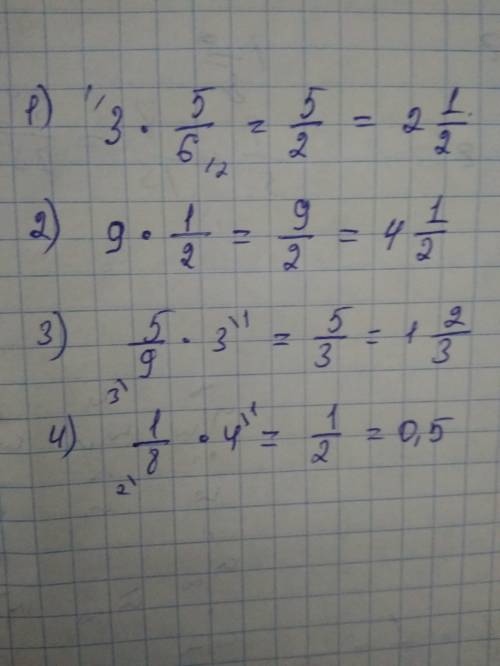 1) 3 · 5/6 = 5/2 = 2 1/2
2) 9 · 1/2 = 9/2 = 4 1/2
3) 5/9 · 3 = 5/3 = 1 2/3
4) 1/8 · 4 = 1/2 = 0,5